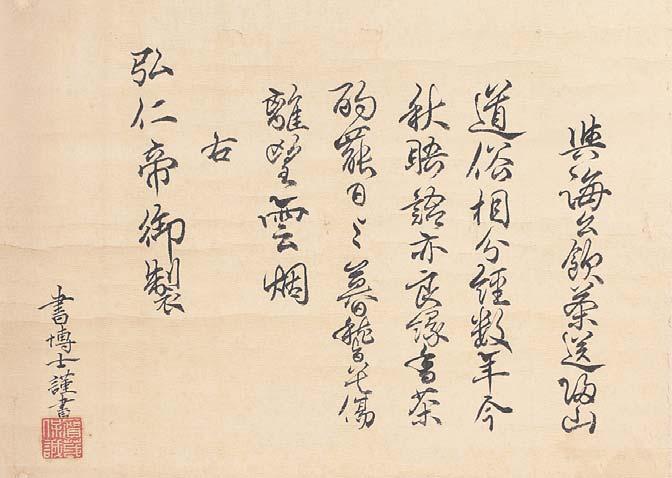 與海公飲茶送歸山
道俗相分經数年今
秋晤語亦良緣香茶
酌罷日云暮稽首傷
離望雲烟
右
弘仁帝御製
書博士謹書